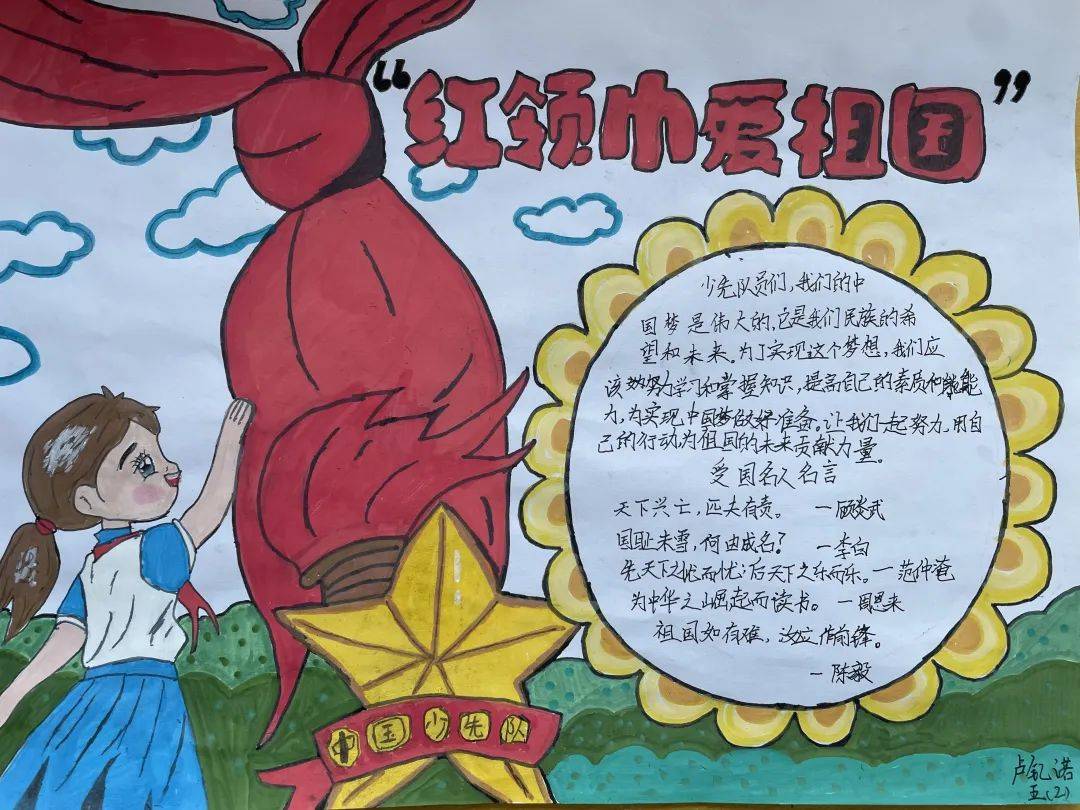 “红领巾爱祖国”
少先队员们,我们的中
国梦是伟大的,它是我们民族的希
望和未来。为了实现这个梦想,我们应
该努力学习和掌握知识,提高自己的素质和能
力,为实现中国梦做好准备。让我们一起努力,用自
己的行动为祖国的未来贡献力量。
爱国名人名言
天下兴亡,匹夫有责。 —顾炎武
国耻未雪,何由成名? —李白
先天下之忧而忧,后天下之乐而乐。—范仲淹
为中华之崛起而读书。 —周恩来
祖国如有难,汝应作前锋。
—陈毅
中国少先队
卢钇诺
五(2)